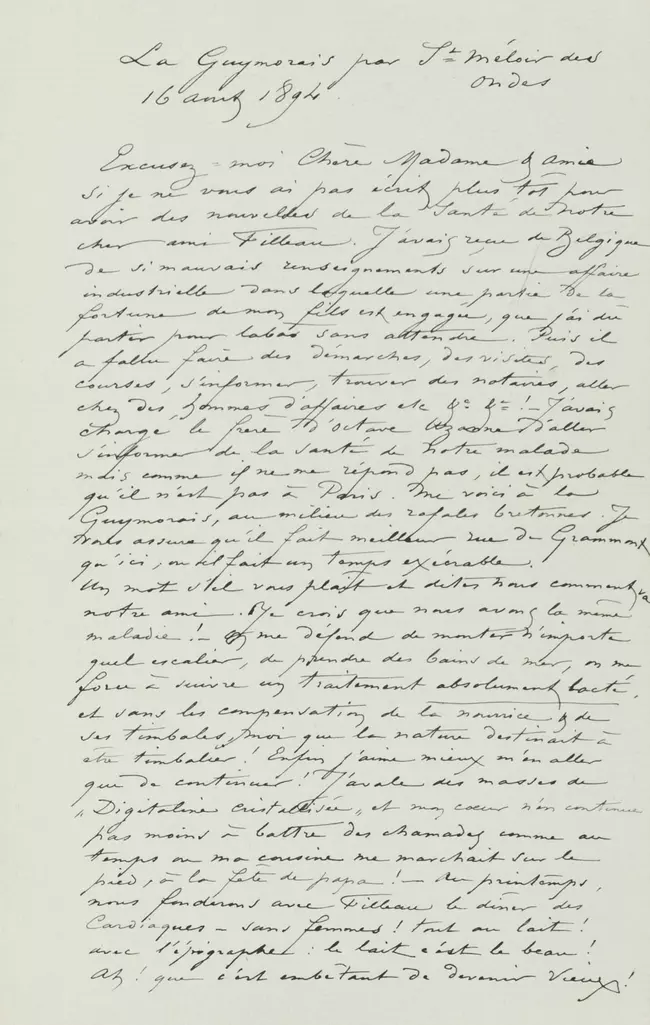 La Guymorais par St Méloir des
Ondes
16 aout 1894.
Excusez-moi Chère Madame & amie
si je ne vous ai pas écrit plus tôt pour
avoir des nouvelles de la Santé de notre
cher ami Filleau. J'avais reçu de Belgique
de si mauvais renseignements sur une affaire
industrielle dans laquelle une partie de la
fortune de mon fils est engagée, que j'ai dû
partir pour labas sans attendre. Puis il
a fallu faire des démarches, des visites, des
courses, s'informer, trouver des notaires, aller
chez des hommes d'affaires etc &a &a! – J'avais
chargé le frère d'Octave Uzanne d'aller
s'informer de la santé de notre malade
mais comme il ne me répond pas, il est probable
qu'il n'est pas à Paris. Me voici à la
Guymorais, au milieu des rafales bretonnes. Je
vous assure qu'il fait meilleur rue de Grammont
qu'ici, où il fait un temps exécrable.
Un mot s'il vous plait et dites nous comment va
notre ami. Je crois que nous avons la même
maladie! – me défend de monter n'importe
quel escalier, de prendre des bains de mer, on me
force à suivre un traitement absolument lacté,
et sans les compensations de la nourrice & de
ses timbales, moi que la nature destinait à
être timbalier! Enfin j'aime mieux m'en aller
que de continuer! J'avale des masses de
"Digitaline cristallisée", et mon cœur n'en continue
pas moins à battre des chamades comme au
temps où ma cousine me marchait sur le
pied, à la fête de papa! – Au printemps,
nous fonderons avec Filleau le dîner des
Cardiaques – sans femmes! tout au lait!
avec l'épigraphe: le lait c'est le beau!
Ah! que c'est embêtant de devenir vieux!